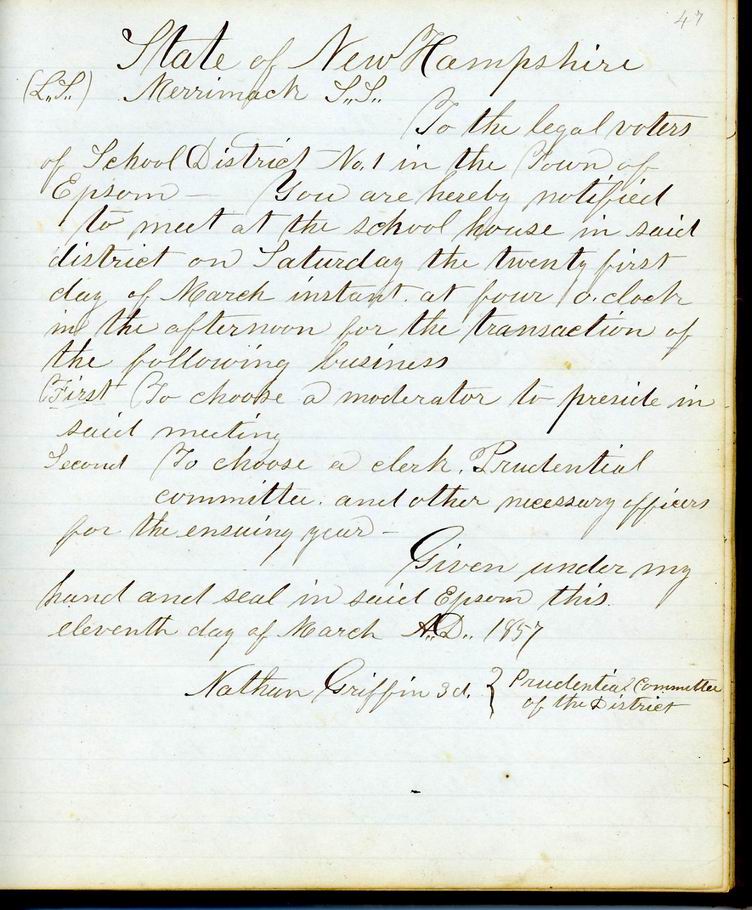 47
State of New Hampshire
(L.S.) Merrimack S.S.
To the legal voters
of School District No. 1 in the Town of
Epsom — You are hereby notified
to meet at the school house in said
district on Saturday the twenty first
day of March instant. at four o.clock
in the afternoon for the transaction of
the following business
First To choose a moderator to preside in
said meeting
Second To choose a clerk, Prudential
committee. and other necessary officers
for the ensuing year —
Given under my
hand and seal in said Epsom this.
eleventh day of March A.D. 1857
Nathan Griffin 3d. } Prudential Committee
of the District